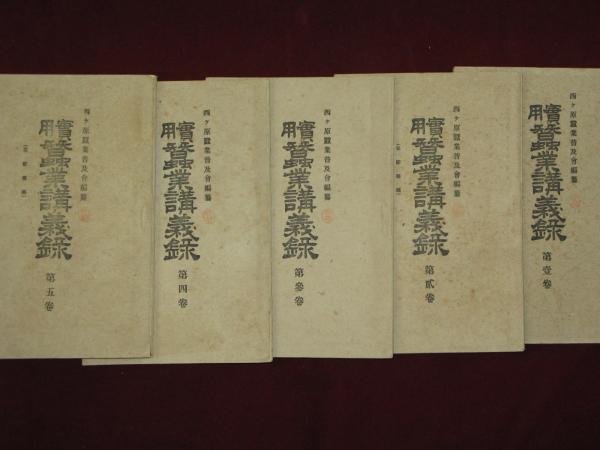 西ヶ原蠶業普及會編纂
實用蠶業講義錄
第壹卷
西ヶ原蠶業普及會編纂
實用蠶業講義錄
第貳卷
西ヶ原蠶業普及會編纂
實用蠶業講義錄
第參卷
西ヶ原蠶業普及會編纂
實用蠶業講義錄
第四卷
西ヶ原蠶業普及會編纂
實用蠶業講義錄
第五卷